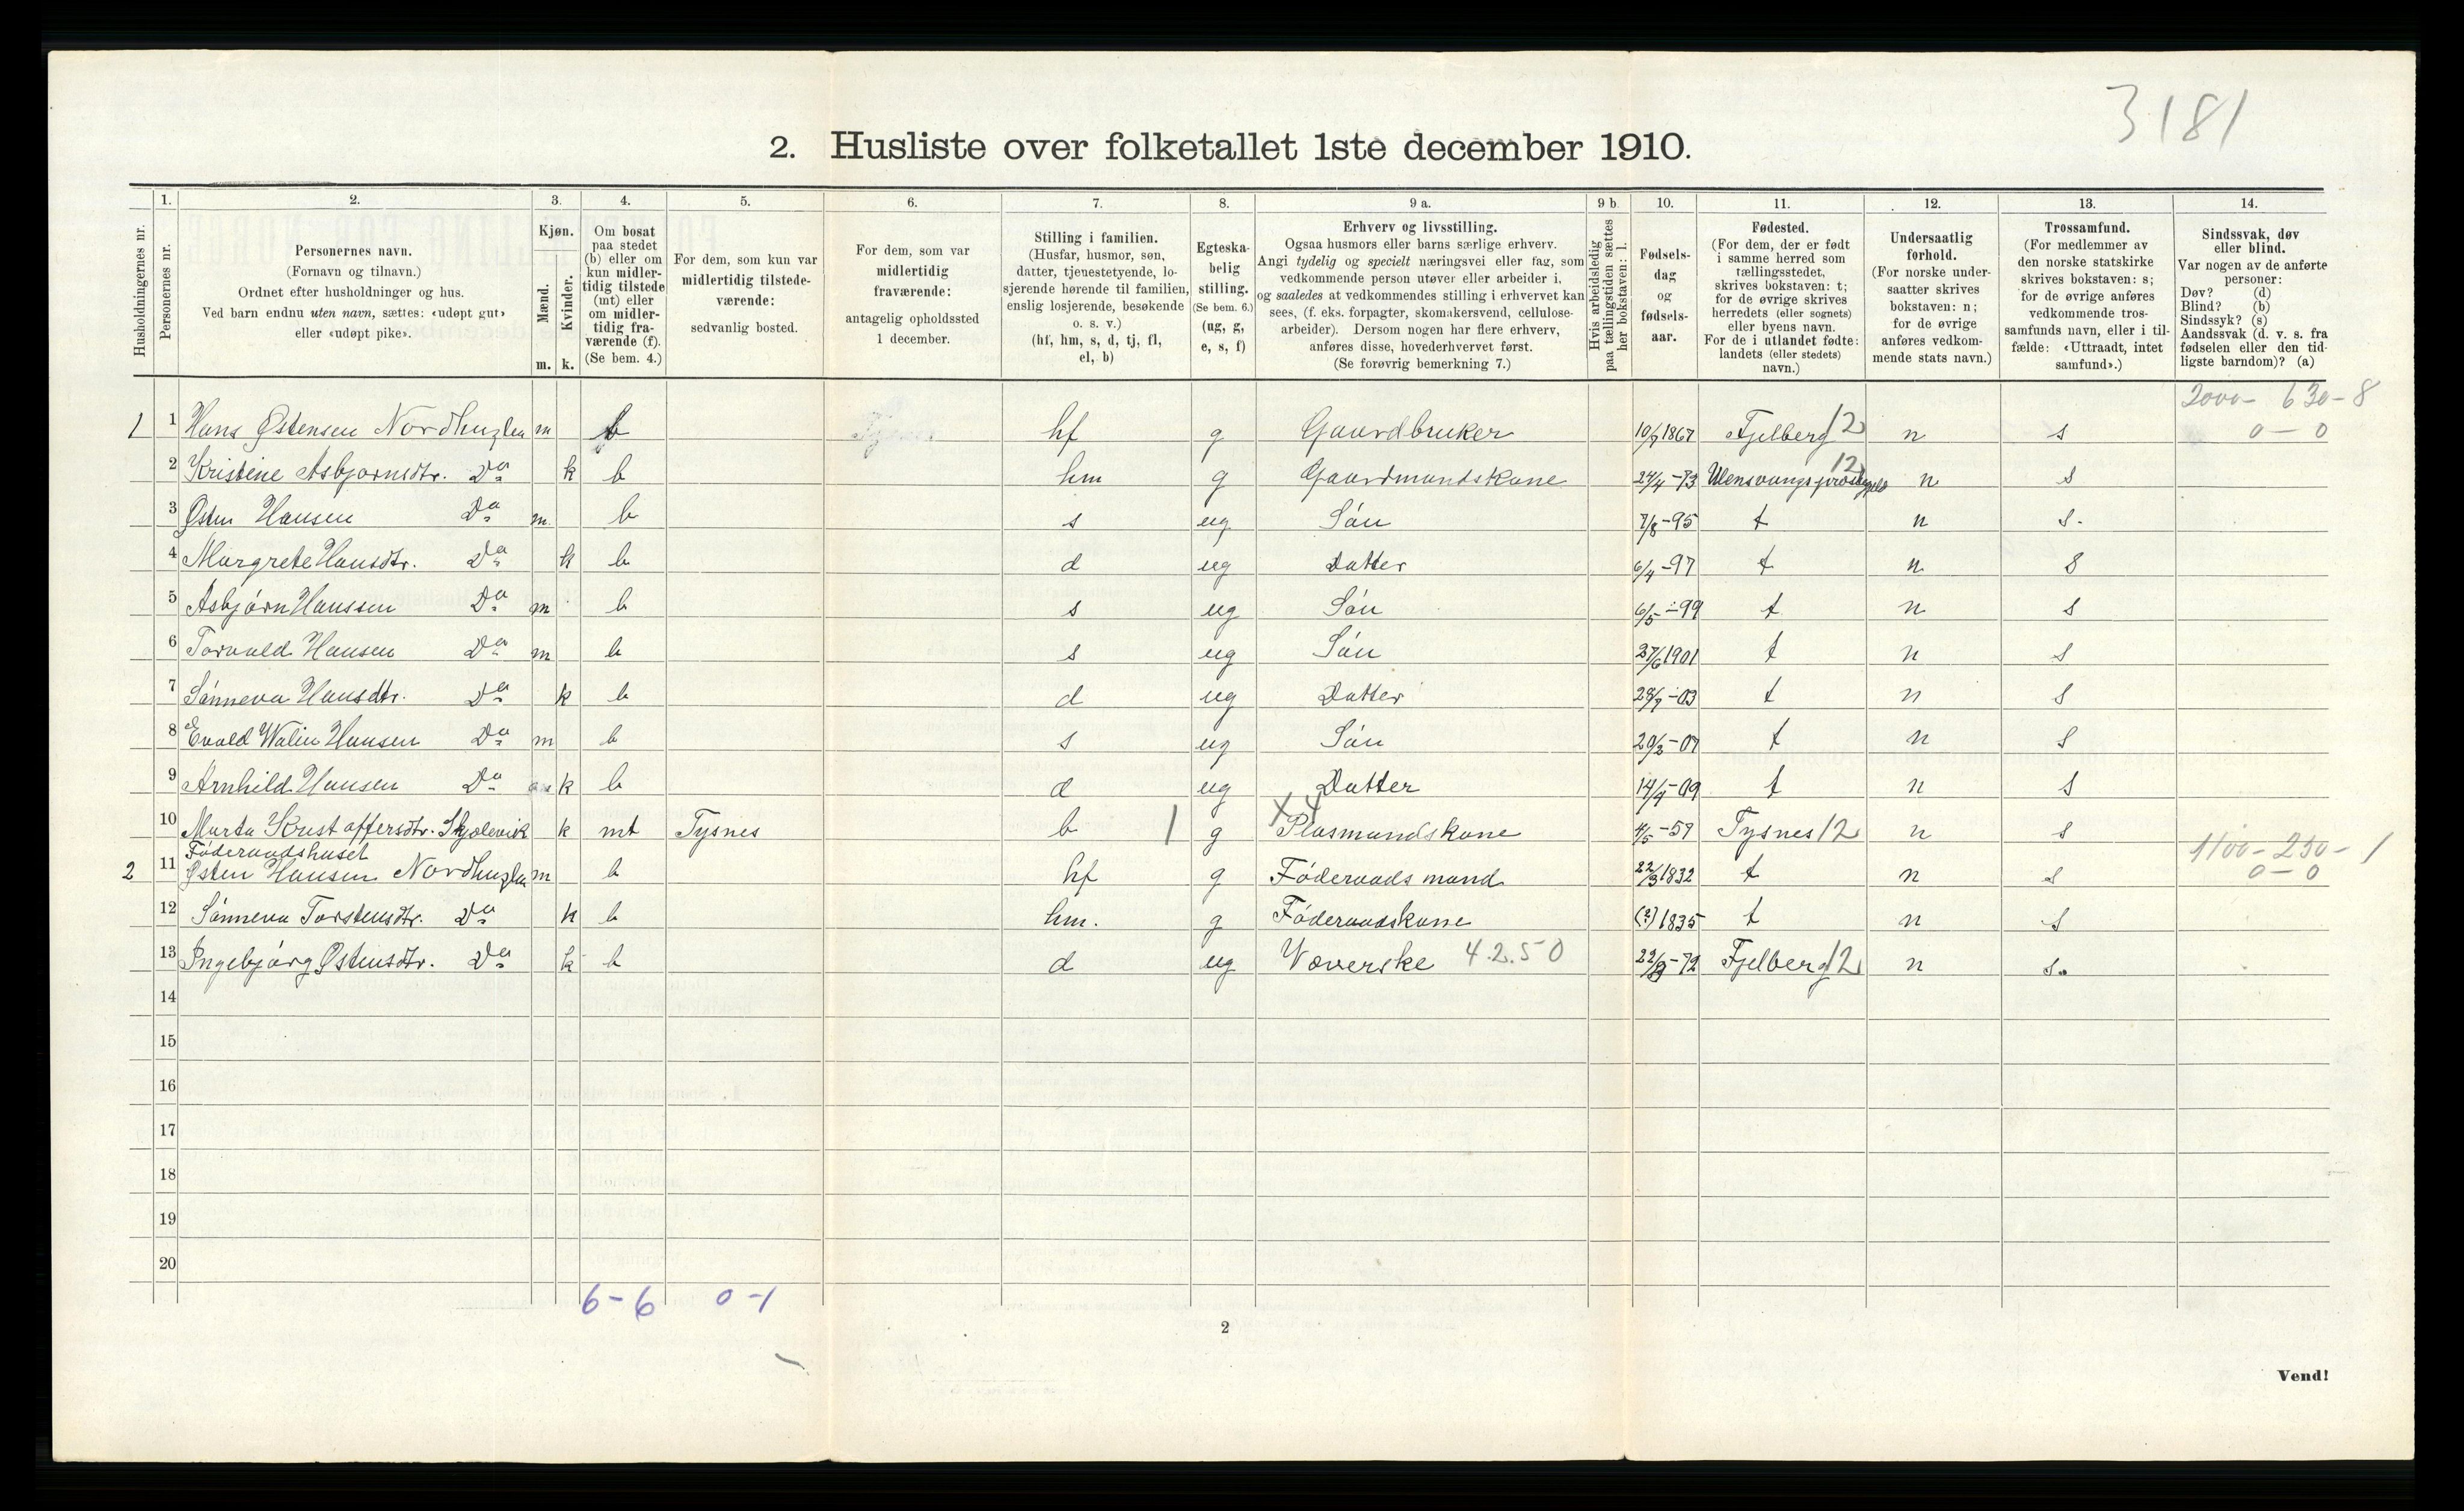 3181
2. Husliste over folketallet 1ste december 1910.
1. 2. 3. 4. 5. 6. 7. 8. 9 a. 9 b. 10. 11. 12. 13. 14.
Husholdningernes nr.
Personernes nr.
Personernes navn.
(Fornavn og tilnavn.)
Ordnet efter husholdninger og hus.
Ved barn endnu uten navn, sættes: «udøpt gut»
eller «udøpt pike».
Kjøn.
Mænd.
m.
Kvinder.
k.
Om bosat
paa stedet
(b) eller om
kun midler-
tidig tilstede
(mt) eller
om midler-
tidig fra-
værende (f).
(Se bem. 4.)
For dem, som kun var
midlertidig tilstede-
værende:
sedvanlig bosted.
For dem, som var
midlertidig
fraværende:
antagelig opholdssted
1 december.
Stilling i familien.
(Husfar, husmor, søn,
datter, tjenestetyende, lo-
sjerende hørende til familien,
enslig losjerende, besøkende
o. s. v.)
(hf, hm, s, d, tj, fl,
el, b)
Egteska-
belig
stilling.
(Se bem. 6.)
(ug, g,
e, s, f)
Erhverv og livsstilling.
Ogsaa husmors eller barns særlige erhverv.
Angi tydelig og specielt næringsvei eller fag, som
vedkommende person utøver eller arbeider i,
og saaledes at vedkommendes stilling i erhvervet kan
sees, (f. eks. forpagter, skomakersvend, cellulose-
arbeider). Dersom nogen har flere erhverv,
anføres disse, hovederhvervet først.
(Se forøvrig bemerkning 7.)
Hvis arbeidsledig
paa tællingstiden sættes
her bokstaven: l.
Fødsels-
dag
og
fødsels-
aar.
Fødested.
(For dem, der er født
i samme herred som
tællingsstedet,
skrives bokstaven: t;
for de øvrige skrives
herredets (eller sognets)
eller byens navn.
For de i utlandet fødte:
landets (eller stedets)
navn.)
Undersaatlig
forhold.
(For norske under-
saatter skrives
bokstaven: n;
for de øvrige
anføres vedkom-
mende stats navn.)
Trossamfund.
(For medlemmer av
den norske statskirke
skrives bokstaven: s;
for de øvrige anføres
vedkommende tros-
samfunds navn, eller i til-
fælde: «Uttraadt, intet
samfund».)
Sindssvak, døv
eller blind.
Var nogen av de anførte
personer:
Døv? (d)
Blind? (b)
Sindssyk? (s)
Aandssvak (d. v. s. fra
fødselen eller den tid-
ligste barndom)? (a)
2000- 630-8
1 1 Hans Østensen Nordhuglen m b hf g Gaardbruker 10/7 1867 Fjelberg 12 n s 0-0
2 Kristine Asbjørnsdtr. Do k b hm g Gaardmandskone 24/4 -73 Ulensvangs prestegjeld 12 n s
3 Østen Hansen Do m b s ug Søn 7/8 -95 t n s.
4 Margrete Hansdtr. Do k b d ug Datter 6/4 -97 t n s
5 Asbjørn Hanssen Do m b s ug Søn 6/5 -99 t n s
6 Torvald Hansen Do m b s ug Søn 27/6 1901 t n s
7 Sønneva Hansdtr. Do k b d ug Datter 28/7 -03 t n s
8 Evald Walin Hansen Do m b s ug Søn 20/2 -07 t n s
9 Arnhild Hansen Do k b d ug Datter 14/9 -09 t n s
10 Marta Kristoffersdtr. Skjolevik k mt Tysnes b 1 g Plasmandskone 4/5 -59 Tysnes 12 n s
Føderaadshuset 1100-230-1
2 11 Østen Hansen Nordhuglen m b hf g Føderaads mand 22/3 1832 t n s 0-0
12 Sønneva Torstensdtr. Do k b hm. g Føderaadskone (?) 1835 t n s
13 Ingebjørg Østensdtr. Do k b d ug Væverske 4.2.50 -72 Fjelberg 12 n s.
14
15
16
17
18
19
20
6-6 0-1
2
Vend!